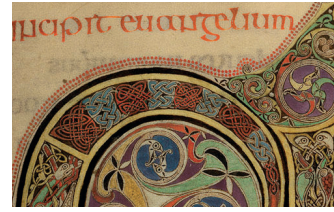 incipit euangelium